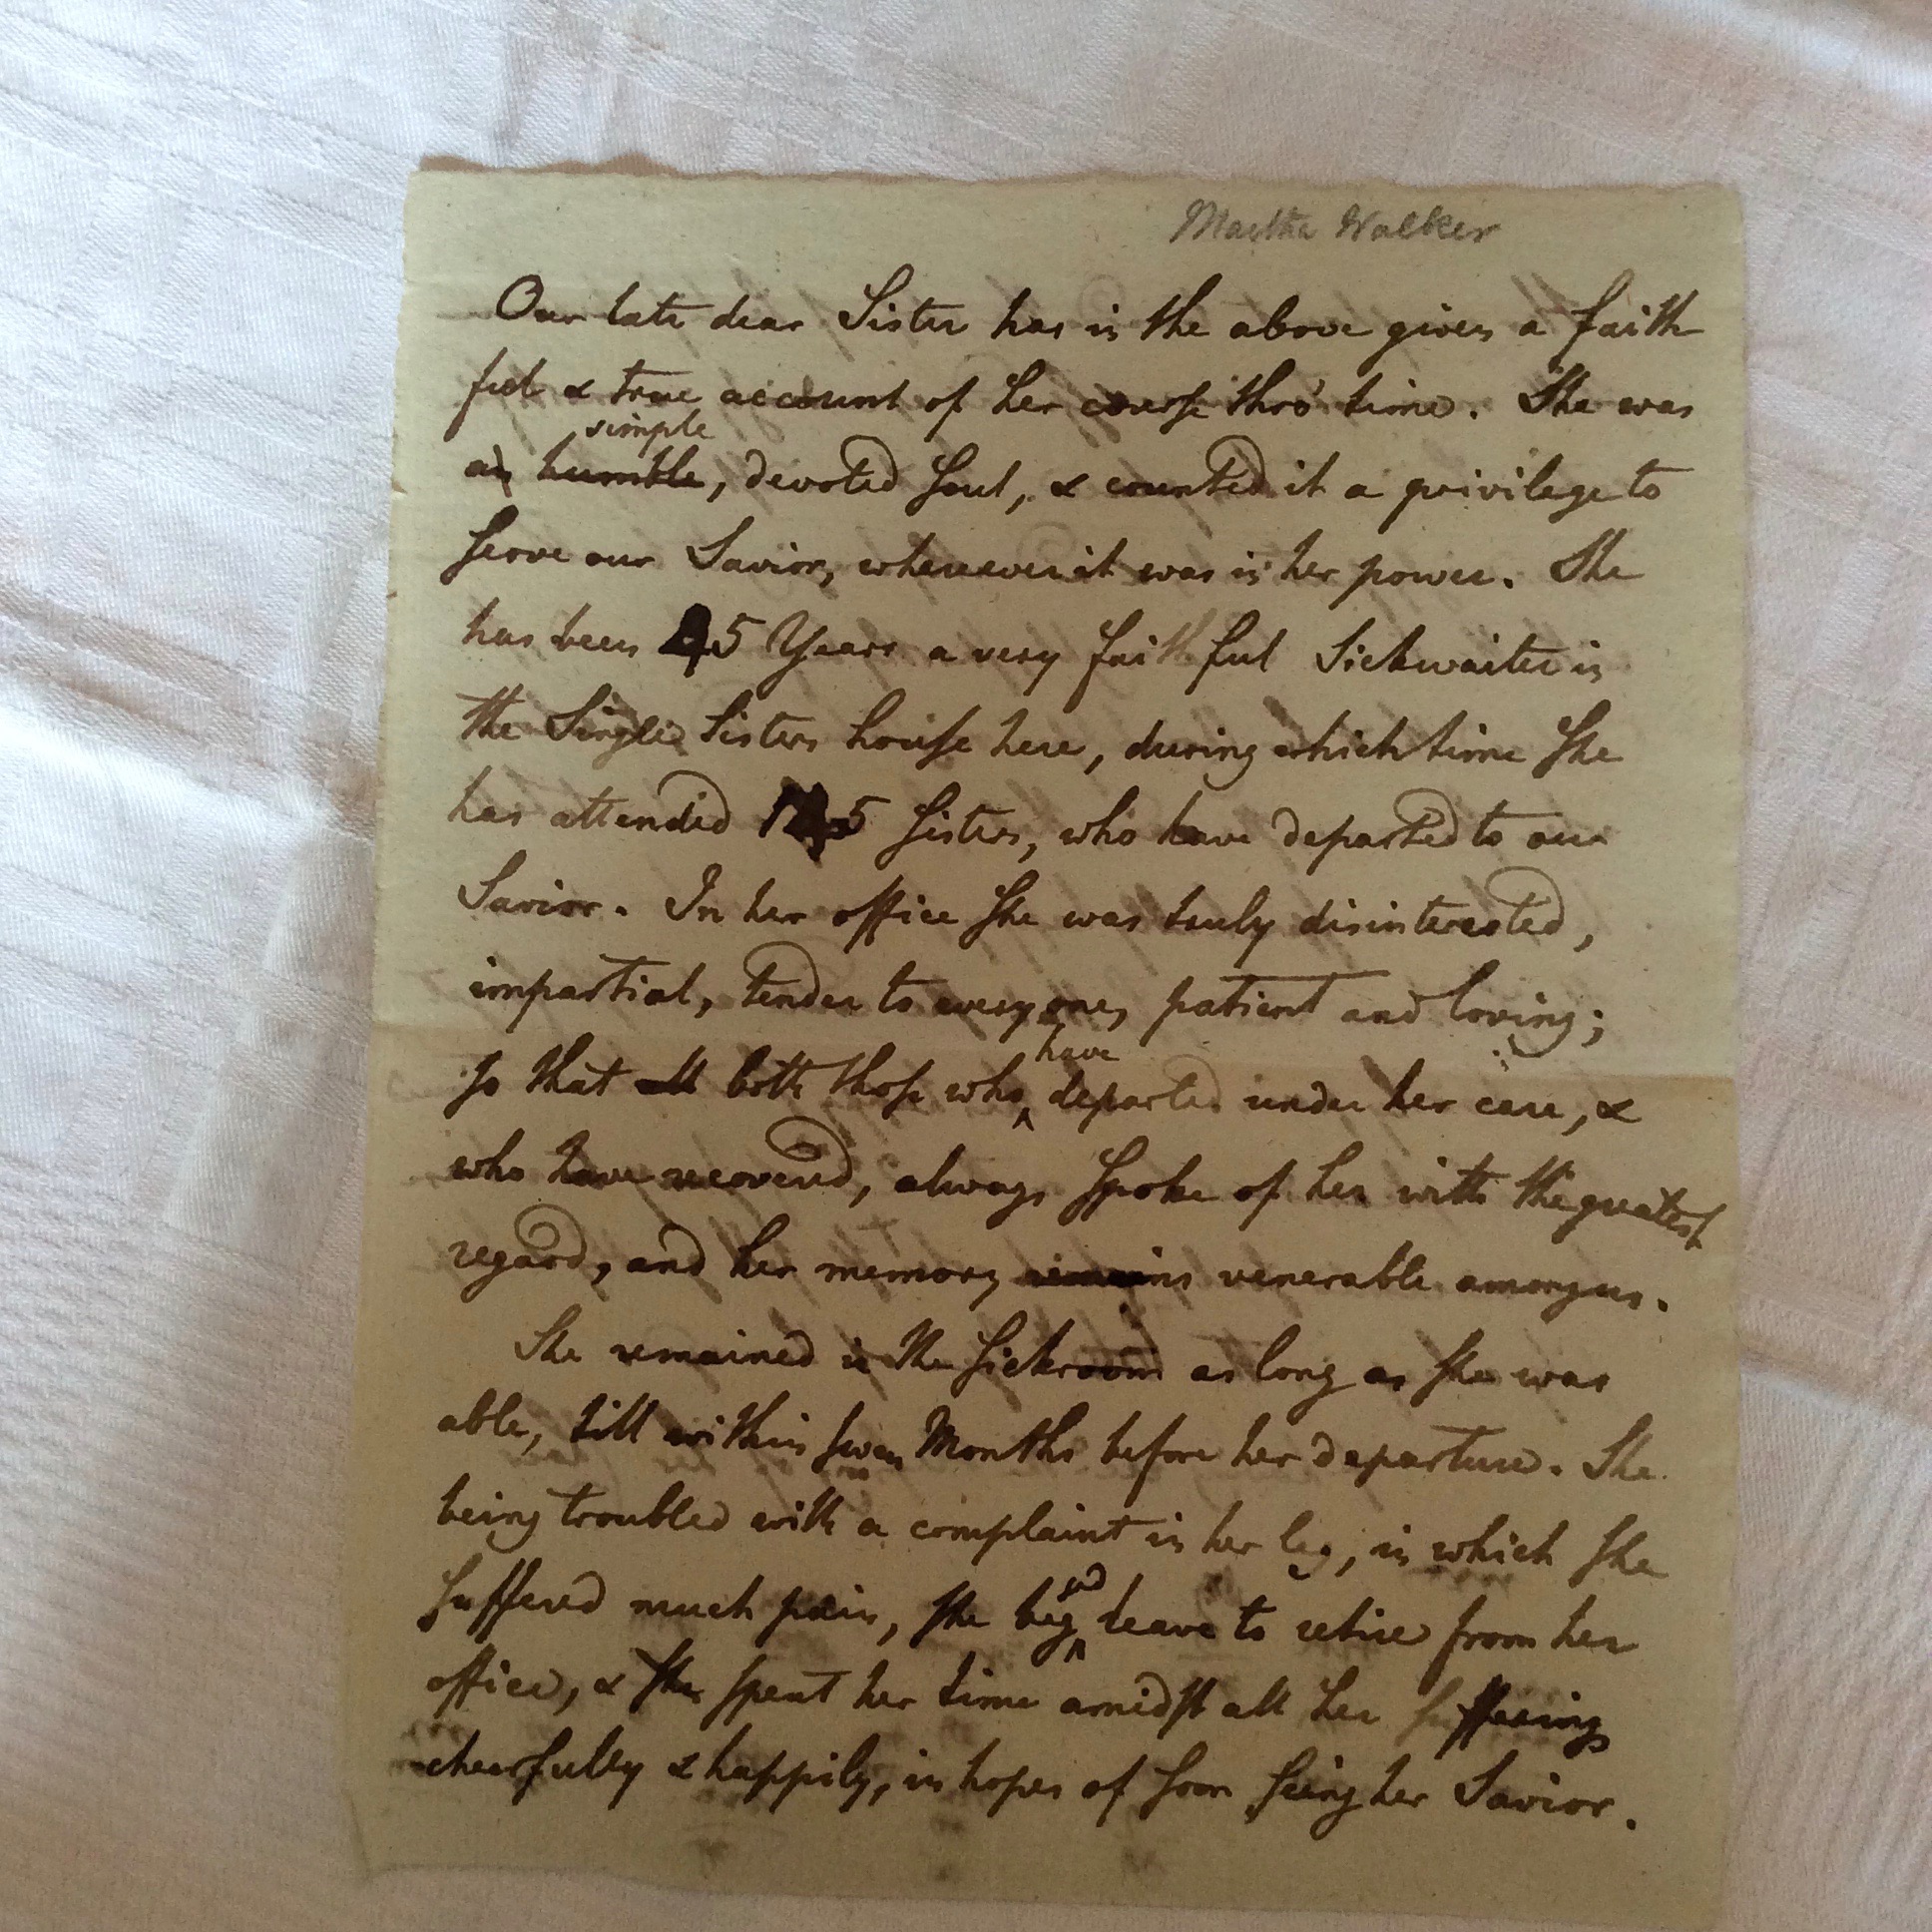 Martha Walker
Our late dear Sister has in the above given a faith
ful & true account of her course thro' time. She was
simple
an humble, devoted Soul, & counted it a privilege to
serve our Savior, whenever it was in her power. She
has been 45 Years a very faithful Sickwaiter in
the Single Sisters house here, during which time She
has attended 5 Sisters, who have departed to our
Savior. In her office She was truly disinterested,
impartial, tender to every one, patient and loving;
have
So that all both those who departed under her care, &
who have recovered, always Spoke of her with the greatest
regard, and her memory remains venerable among us.
She remained in the Sickroom as long as She was
able, till within Months before her departure. She
being troubled with a complaint in her leg, in which She
ed
Suffered much pain, She beg leave to retire from her
office, & She Spent her time amidst all her Suffering
chearfully & happily, in hopes of Soon Seeing her Savior.